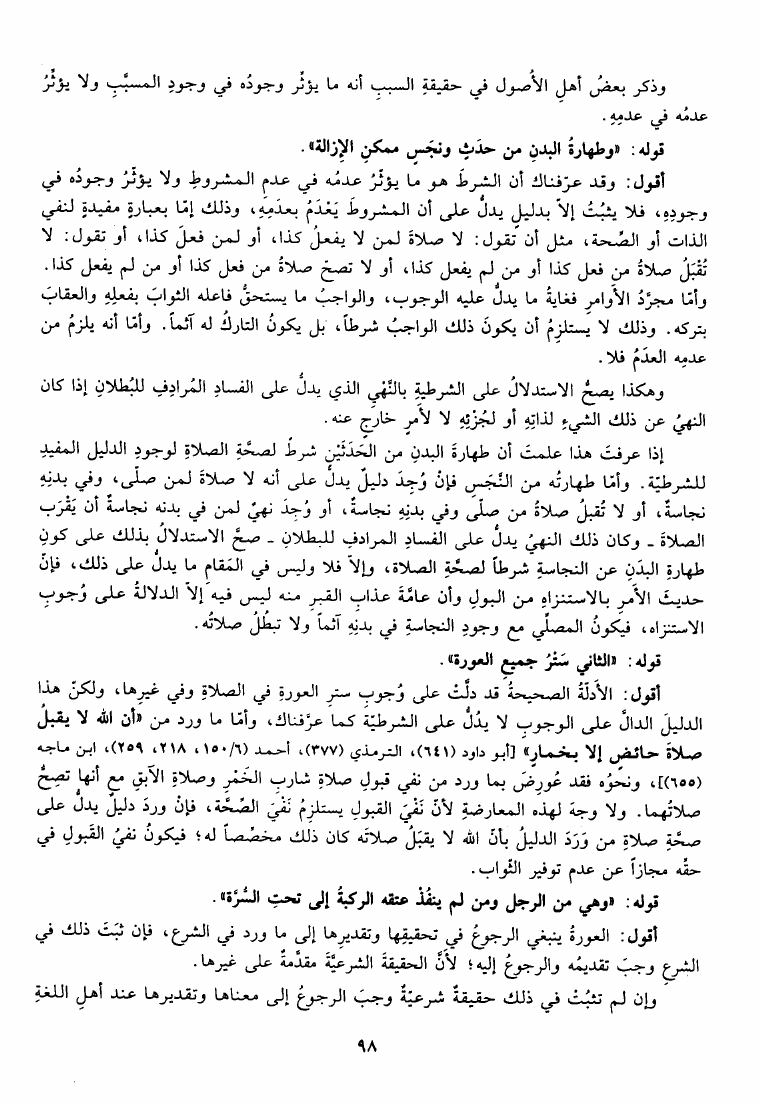 وذكر بعضُ أهلِ الأُصول في حقيقةِ السببِ أنه ما يؤثِّر وجودُه في وجودِ المسبَّبِ ولا يؤثِّرُ
عدمُه في عدمِهِ.
قوله: «وطهارةُ البدنِ من حدَثٍ ونجَسٍ ممكنِ الإزالة».
أقول: وقد عرّفناك أن الشرطَ هو ما يؤثّرُ عدمُه في عدمِ المشروطِ ولا يؤثّرُ وجودُه في
وجودِهِ، فلا يثبُتُ إلاّ بدليلٍ يدلُّ على أن المشروطَ يَعْدَمُ بعدمِهِ، وذلك إمّا بعبارةٍ مفيدةٍ لنفي
الذات أو الصِّحة، مثل أن تقول: لا صلاةَ لمن لا يفعلُ كذا، أو لمن فعلَ كذا، أو تقول: لا
تُقْبَلُ صلاةُ من فعل كذا أو من لم يفعل كذا، أو لا تصحّ صلاةُ من فعل كذا أو من لم يفعل كذا.
وأمّا مجرَّدُ الأوامرِ فغايةُ ما يدلُّ عليه الوجوب، والواجبُ ما يستحقُّ فاعله الثوابَ بفعلِهِ والعقابَ
بتركه. وذلك لا يستلزمُ أن يكونَ ذلك الواجبُ شرطاً، بل يكونُ التاركُ له آثماً. وأمّا أنه يلزمُ من
عدمِه العدَمُ فلا.
وهكذا يصحُّ الاستدلالُ على الشرطيةِ بالنَّهْيِ الذي يدلُّ على الفسادِ المُرادِفِ للبُطلانِ إذا كان
النهيُ عن ذلك الشيءِ لذاتِهِ أو لجُزْئِهِ لا لأمرٍ خارجٍ عنه.
إذا عرفتَ هذا علمتَ أن طهارةَ البدنِ من الحَدَثَيْنِ شرطٌ لصحَّةِ الصلاةِ لوجودِ الدليل المفيدِ
للشرطيّة. وأمّا طهارتُه من النَّجَسِ فإنْ وُجِدَ دليلٌ يدلُّ على أنه لا صلاةَ لمن صلّى، وفي بدنِهِ
نجاسةٌ، أو لا تُقبلُ صلاةُ من صلّى وفي بدنِهِ نجاسةٌ، أو وُجِدَ نهيٌ لمن في بدنه نجاسةٌ أن يَقْرَب
الصلاةَ ـ وكان ذلك النهيُ يدلُّ على الفسادِ المرادفِ للبطلانِ ـ صحَّ الاستدلالُ بذلك على كونِ
طهارةِ البدَنِ عن النجاسةِ شرطاً لصحَّةِ الصلاة، وإلاّ فلا وليس في المَقام ما يدلُّ على ذلك، فإنّ
حديثَ الأمرِ بالاستنزاهِ من البولِ وأن عامَّةَ عذابِ القبرِ منه ليس فيه إلاّ الدلالةُ على وُجوبِ
الاستنزاه، فيكونُ المصلِّي مع وجودِ النجاسةِ في بدنِهِ آثماً ولا تبطُلُ صلاتُه.
قوله: «الثاني سَتْرُ جميعِ العورة».
أقول: الأدلَّةُ الصحيحةُ قد دلَّتْ على وُجوبِ سترِ العورةِ في الصلاةِ وفي غيرِها، ولكنّ هذا
الدليلَ الدالَّ على الوجوبِ لا يدُلُّ على الشرطيّة كما عرَّفناك، وأمّا ما ورد من «أن الله لا يقبلُ
صلاةَ حائضٍ إلا بخمارٍ» [أبو داود (٦٤١)، الترمذي (٣٧٧)، أحمد (٦/١٥٠، ٢١٨، ٢٥٩)، ابن ماجه
(٦٥٥)]، ونحوُه فقد عُورِضَ بما ورد من نفي قبولِ صلاةِ شاربِ الخَمْرِ وصلاةِ الآبقِ مع أنها تصِحُّ
صلاتُهما. ولا وجهَ لهذه المعارضةِ لأنّ نَفْيَ القبولِ يستلزمُ نَفْيَ الصِّحَّة، فإنْ وردَ دليلٌ يدلُّ على
صحَّةِ صلاةِ من وَرَدَ الدليلُ بأنّ الله لا يقبَلُ صلاتَه كان ذلك مخصّصاً له؛ فيكونُ نفيُ القَبولِ في
حقِّه مجازاً عن عدم توفيرِ الثّواب.
قوله: «وهي من الرجلِ ومن لم ينفُذْ عتقه الركبةُ إلى تحتِ السُّرَّة».
أقول: العورةُ ينبغي الرجوعُ في تحقيقِها وتقديرِها إلى ما ورد في الشرع، فإن ثبَتَ ذلك في
الشرعِ وجبَ تقديمُه والرجوعُ إليه؛ لأنَّ الحقيقةَ الشرعيَّةَ مقدَّمةٌ على غيرِها.
وإن لم تثبُتْ في ذلك حقيقةٌ شرعيّةٌ وجبَ الرجوعُ إلى معناها وتقديرها عند أهلِ اللغةِ
٩٨